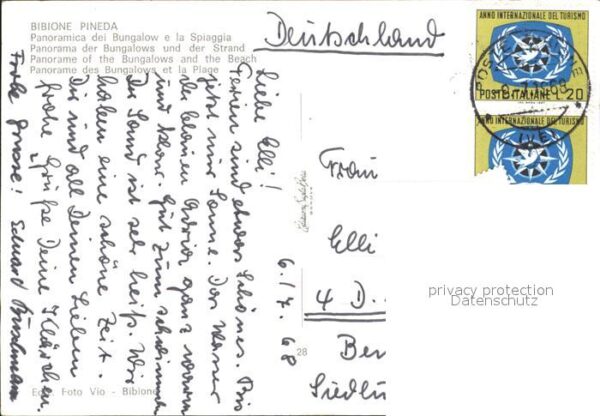 BIBIONE PINEDA
Panoramica dei Bungalow e la Spiaggia
Panorama der Bungalows und der Strand
Panorame of the Bungalows and the Beach
Panorame des Bungalows et la Plage
Deutschland
ANNO INTERNAZIONALE DEL TURISMO
POSTE ITALIANE L. 20
ANNO INTERNAZIONALE DEL TURISMO
6./7. 68
Liebe Elli!
Ferien sind etwas Schönes. Bis
jetzt nur Sonne. Das Wasser
der blauen Adria ganz warm
und Gut zum schwimmen
Der Sand ist sehr heiß. Wir
haben eine schöne Zeit.
Dir und all Deinen Lieben
frohe Grüße Deine Klärchen.
Frohe Grüsse! Eduard
Frau
Elli
4 D.
Ber
Siedlu
28
privacy protection
Datenschutz
Ed. Foto Vio - Bibione